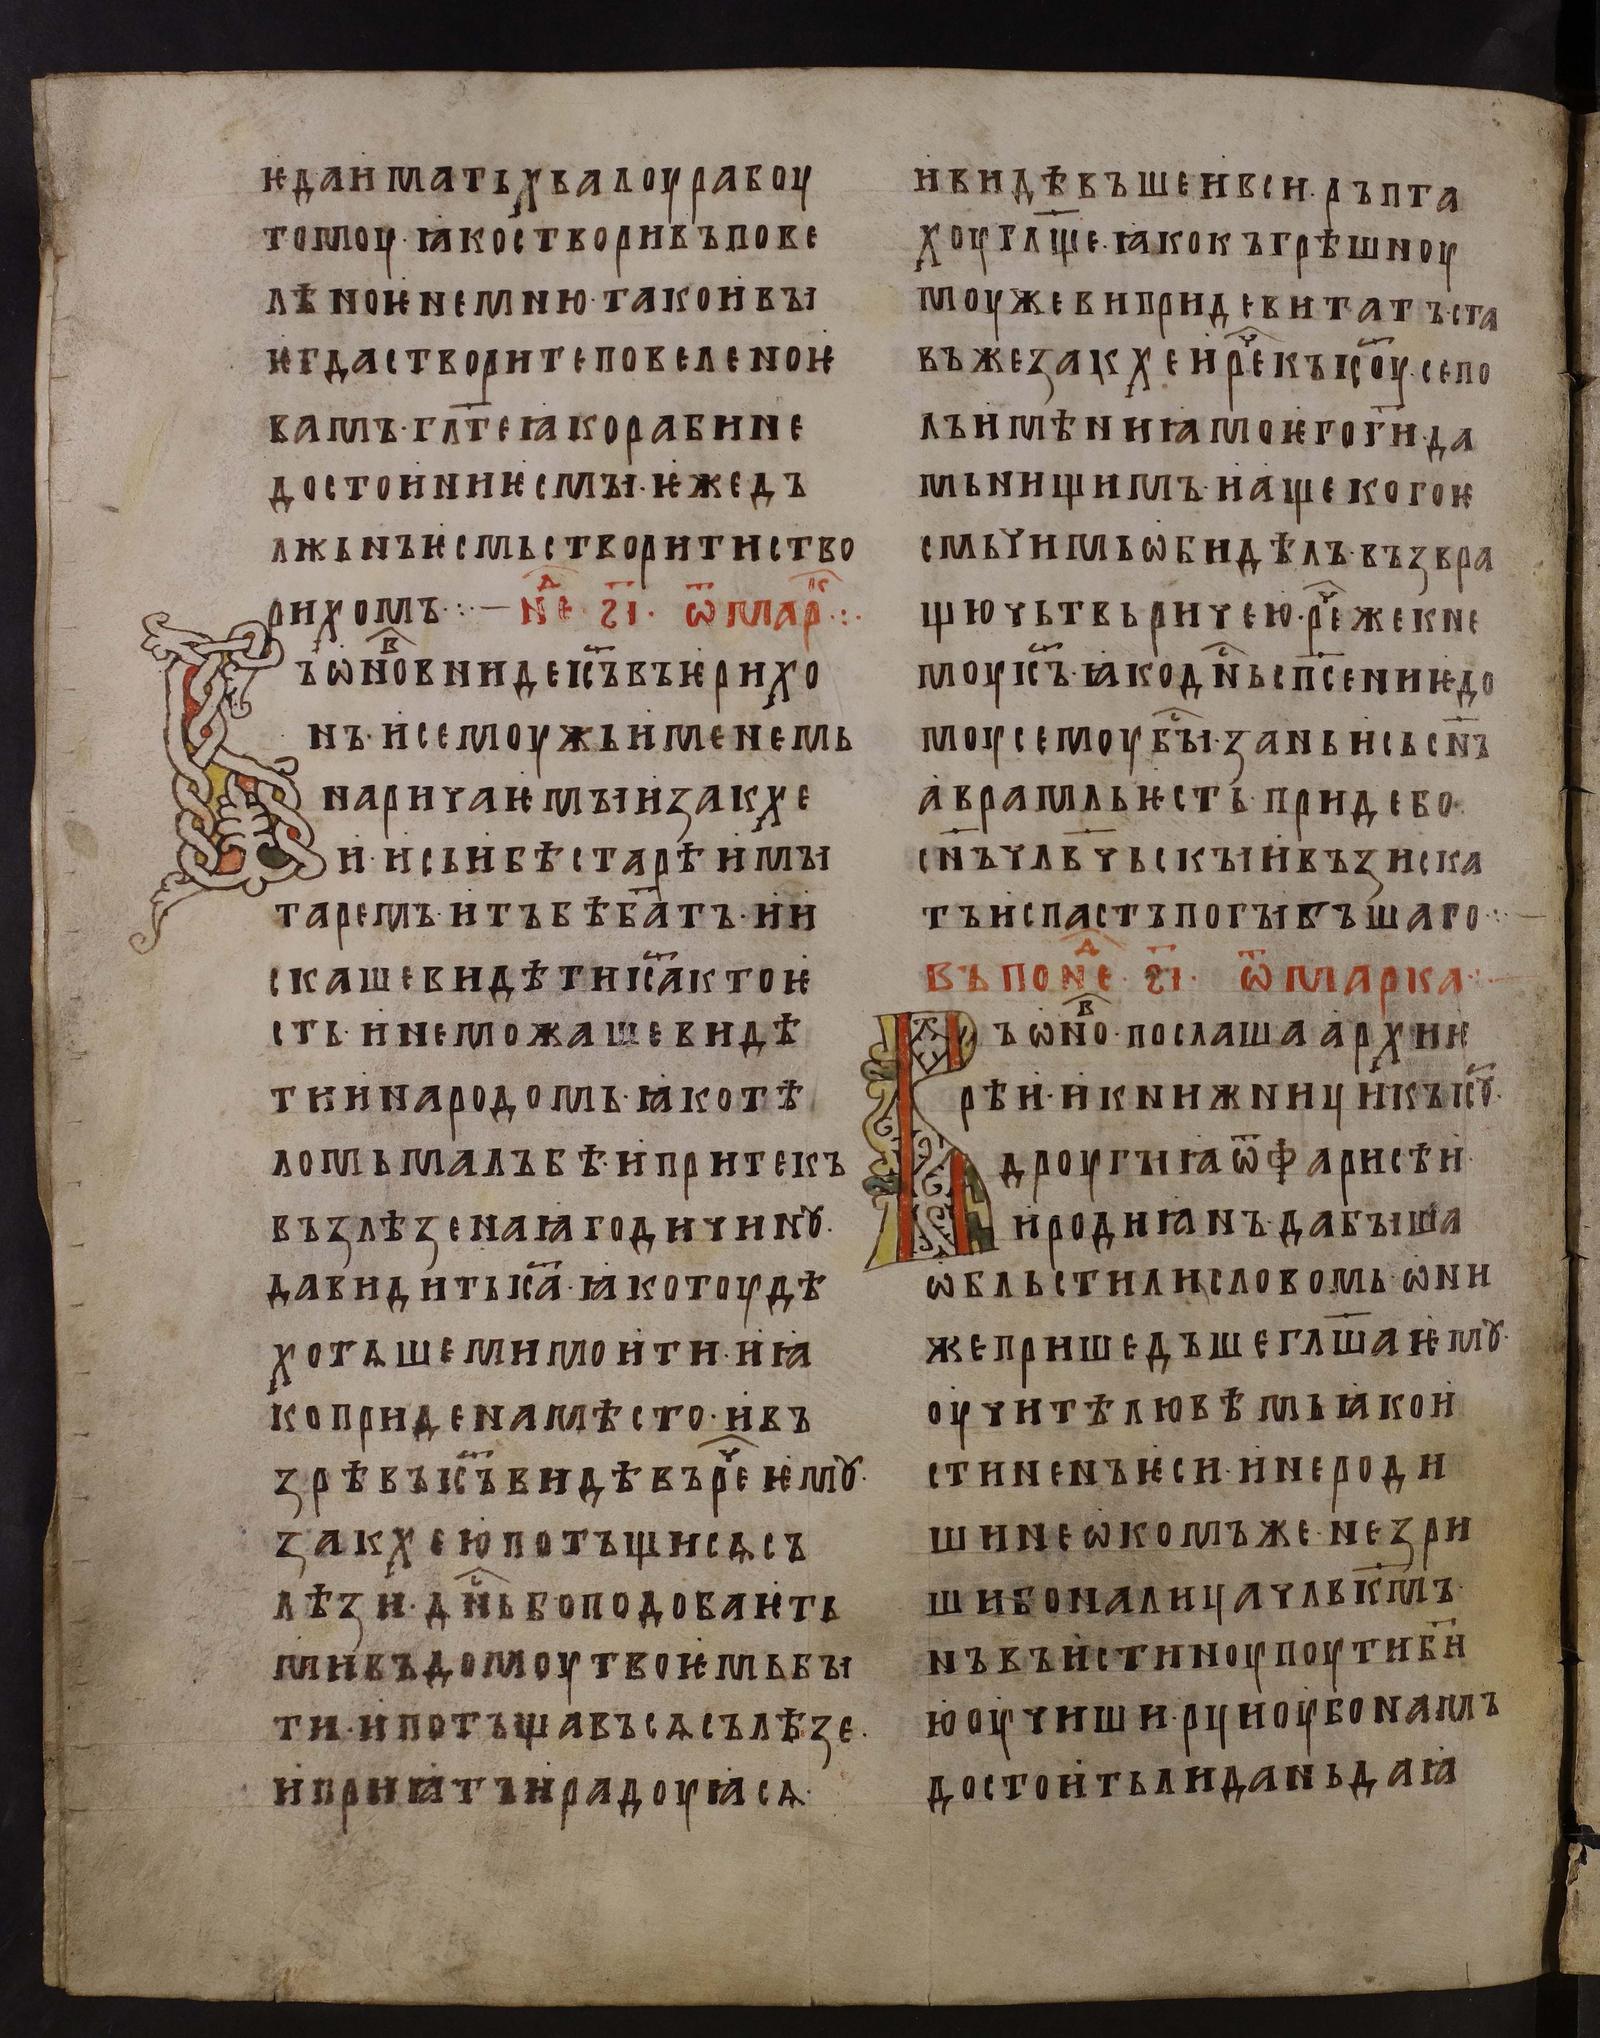 ѥдаиматьхвалоурабоу
томоу·ꙗкостворивъпове
лѣноѥнемню·такоивꙑ
ѥгдастворитеповеленоѥ
вамъ·гл҃теꙗкорабине
достоиниѥсмꙑ·ѥжедъ
лжьнъѥсмьстворитиство
рихомъ·:·— не҃д·г҃і· ѿмар҃к·:·
Въѡно҃ввнидеіс҃ъвъѥрихо
нъ·исемоужьименемь
наричаѥмꙑизакхе
и·исьибѣстарѣимꙑ
таремъ·итъбѣба҃тъ·ии
скашевидѣтиіс҃актоѥ
сть·инеможашевидѣ
тиинародомь·ꙗкотѣ
ломьмалъбѣ·ипритекъ
възлѣзенаꙗгодичинꙋ·
давидитьіс҃а·ꙗкотоудѣ
хотѧшемимоити·иꙗ
коприденамѣсто·ивъ
зрѣвъіс҃ъвидѣвъре҃чѥмꙋ·
закхеюпотъщисѧсъ
лѣзи·дн҃сьбоподобаѥть
мивъдомоутвоѥмьбꙑ
ти·ипотъщавъсѧсълѣзе·
иприꙗтъирадоуꙗсѧ·
ивидѣвъшеивси·ръпта
хоугл҃ще·ꙗкокъгрѣшноу
моужевипридевитатъ·ста
въжезакхеире҃чкъіс҃оу·сепо
лъимѣниꙗмоѥгог҃и·да
мьнищимъ·иащекогоѥ
смьчимьѡбидѣлъ·възвра
щючьтвьричею·ре҃чжекне
моуіс҃ъ·ꙗкодн҃сьсп҃сениѥдо
моусемоубꙑ҃с·заньисьсн҃ъ
аврамльѥсть·придебо·
сн҃ъчлв҃чьскꙑивъзиска
тъиспастъпогꙑбъшаго·:·—
въпоне҃д·г҃і· ѿмарка·:·—
Въѡно҃в·послашаархиѥ
рѣи·икнижницикъіс҃ꙋ·
дроугꙑꙗѿфарисѣи·
иродиꙗнъ·дабꙑша
ѡбльстилисловомь·ѡни
жепришедъшегл҃шаѥмꙋ·
оучитѣлювѣмьꙗкои
стиненъѥси·инероди
шинеѡкомъже·незри
шибоналицачлвк҃мъ·
нъвъистиноупоутиб҃и
юоучиши·рциоубонамъ
достоитьлиданьдаꙗ